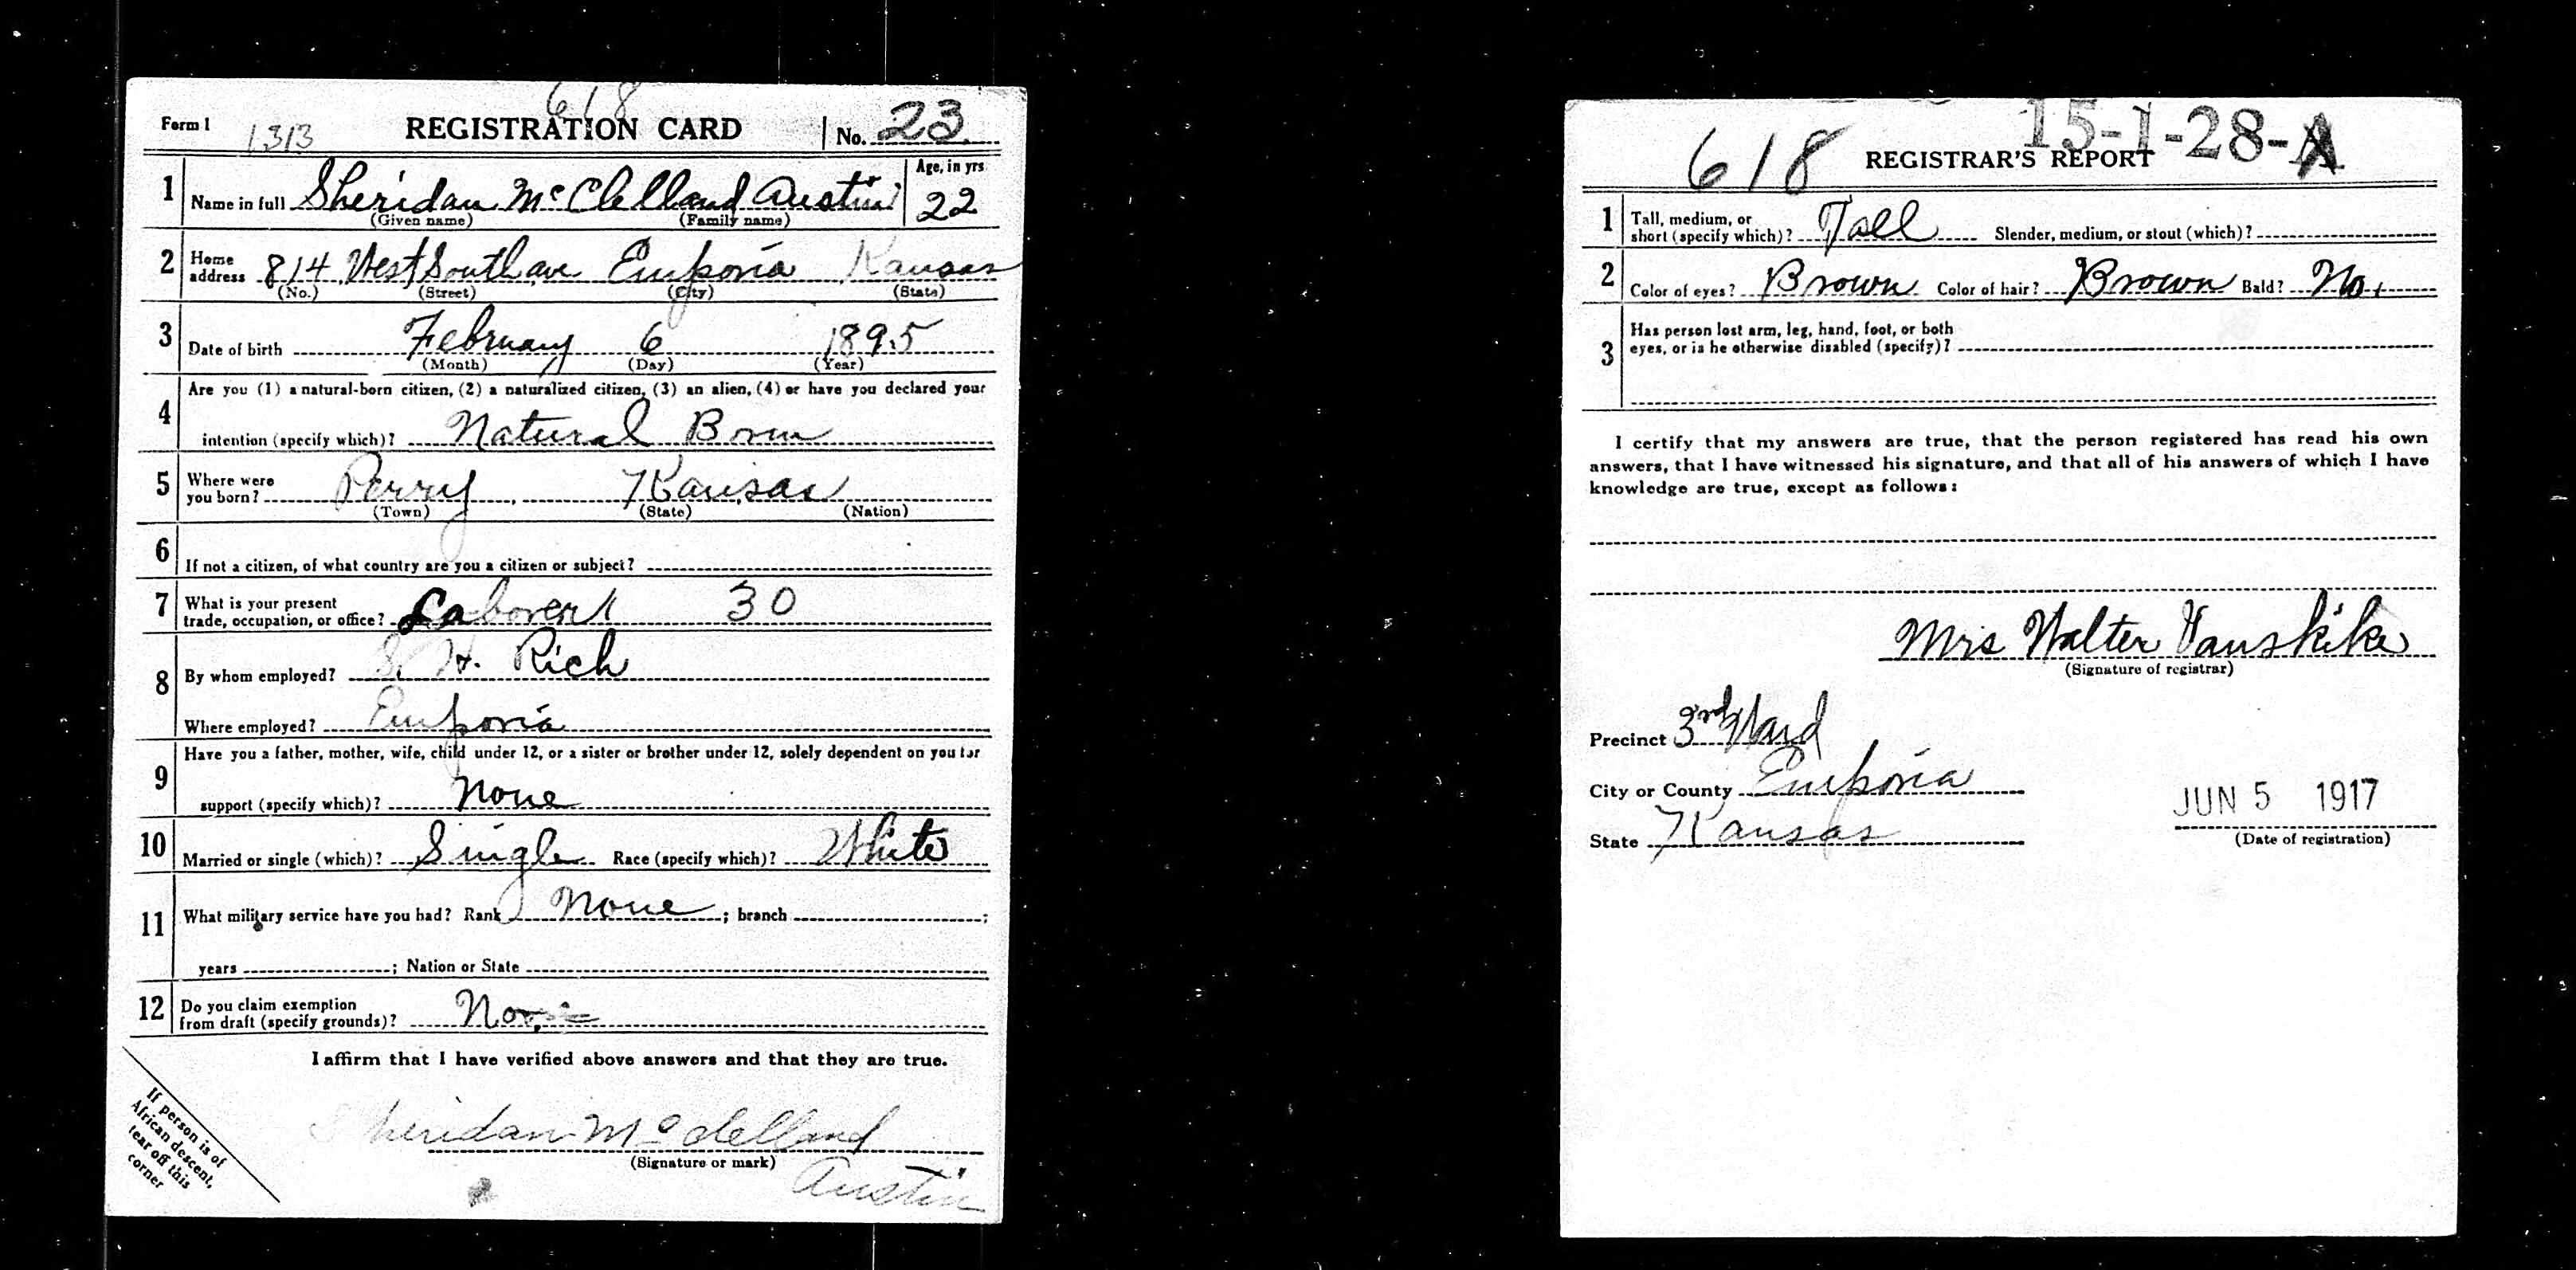 618
Form 1 1313 REGISTRATION CARD No. 23
1 Name in full Sheridan McClelland Austin Age, in yrs 22
(Given name) (Family name)
2 Home address 814 West South ave Emporia Kansas
(No.) (Street) (City) (State)
3 Date of birth February 6 1895
(Month) (Day) (Year)
4 Are you (1) a natural-born citizen, (2) a naturalized citizen, (3) an alien, (4) or have you declared your
intention (specify which)? Natural Born
5 Where were you born? Perry, Kansas
(Town) (State) (Nation)
6 If not a citizen, of what country are you a citizen or subject?
7 What is your present trade, occupation, or office? Laborer 30
8 By whom employed? S. H. Rich
Where employed? Emporia
9 Have you a father, mother, wife, child under 12, or a sister or brother under 12, solely dependent on you for
support (specify which)? None
10 Married or single (which)? Single Race (specify which)? White
11 What military service have you had? Rank None ; branch ;
years ; Nation or State
12 Do you claim exemption from draft (specify grounds)? No
I affirm that I have verified above answers and that they are true.
Sheridan McClelland
(Signature or mark)
Austin
If person is of
African descent,
tear off this
corner
15-1-28-A
618 REGISTRAR'S REPORT
1 Tall, medium, or short (specify which)? Tall Slender, medium, or stout (which)?
2 Color of eyes? Brown Color of hair? Brown Bald? No.
3 Has person lost arm, leg, hand, foot, or both
eyes, or is he otherwise disabled (specify)?
I certify that my answers are true, that the person registered has read his own
answers, that I have witnessed his signature, and that all of his answers of which I have
knowledge are true, except as follows:
Mrs Walter Vanskike
(Signature of registrar)
Precinct 3rd Ward
City or County Emporia
State Kansas
JUN 5 1917
(Date of registration)